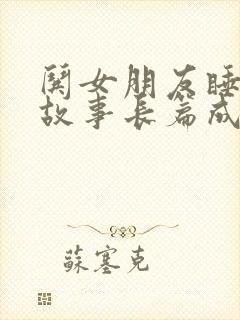 哄女朋友睡
故事长篇成
蘇塞克